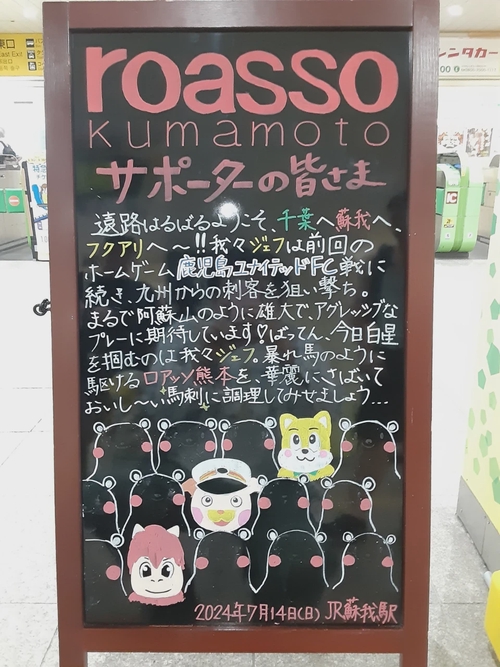 東口
East Exit
レンタカー
roasso
kumamoto
サポーターの皆さま
遠路はるばるようこそ、千葉へ蘇我へ、
フクアリへ〜!!我々ジェフは前回の
ホームゲーム鹿児島ユナイテッドFC戦に
続き、九州からの刺客を狙い撃ち。
まるで阿蘇山のように雄大で、アグレッシブな
プレーに期待しています♡ばってん、今日白星
を掴むのは我々ジェフ。暴れ馬のように
駆けるロアッソ熊本を、華麗にさばいて
おいし〜い馬刺に調理してみせましょう…
IC
2024年7月14日(日) JR蘇我駅